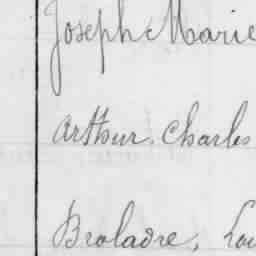 Joseph Marie
Arthur Charles
Broladre,